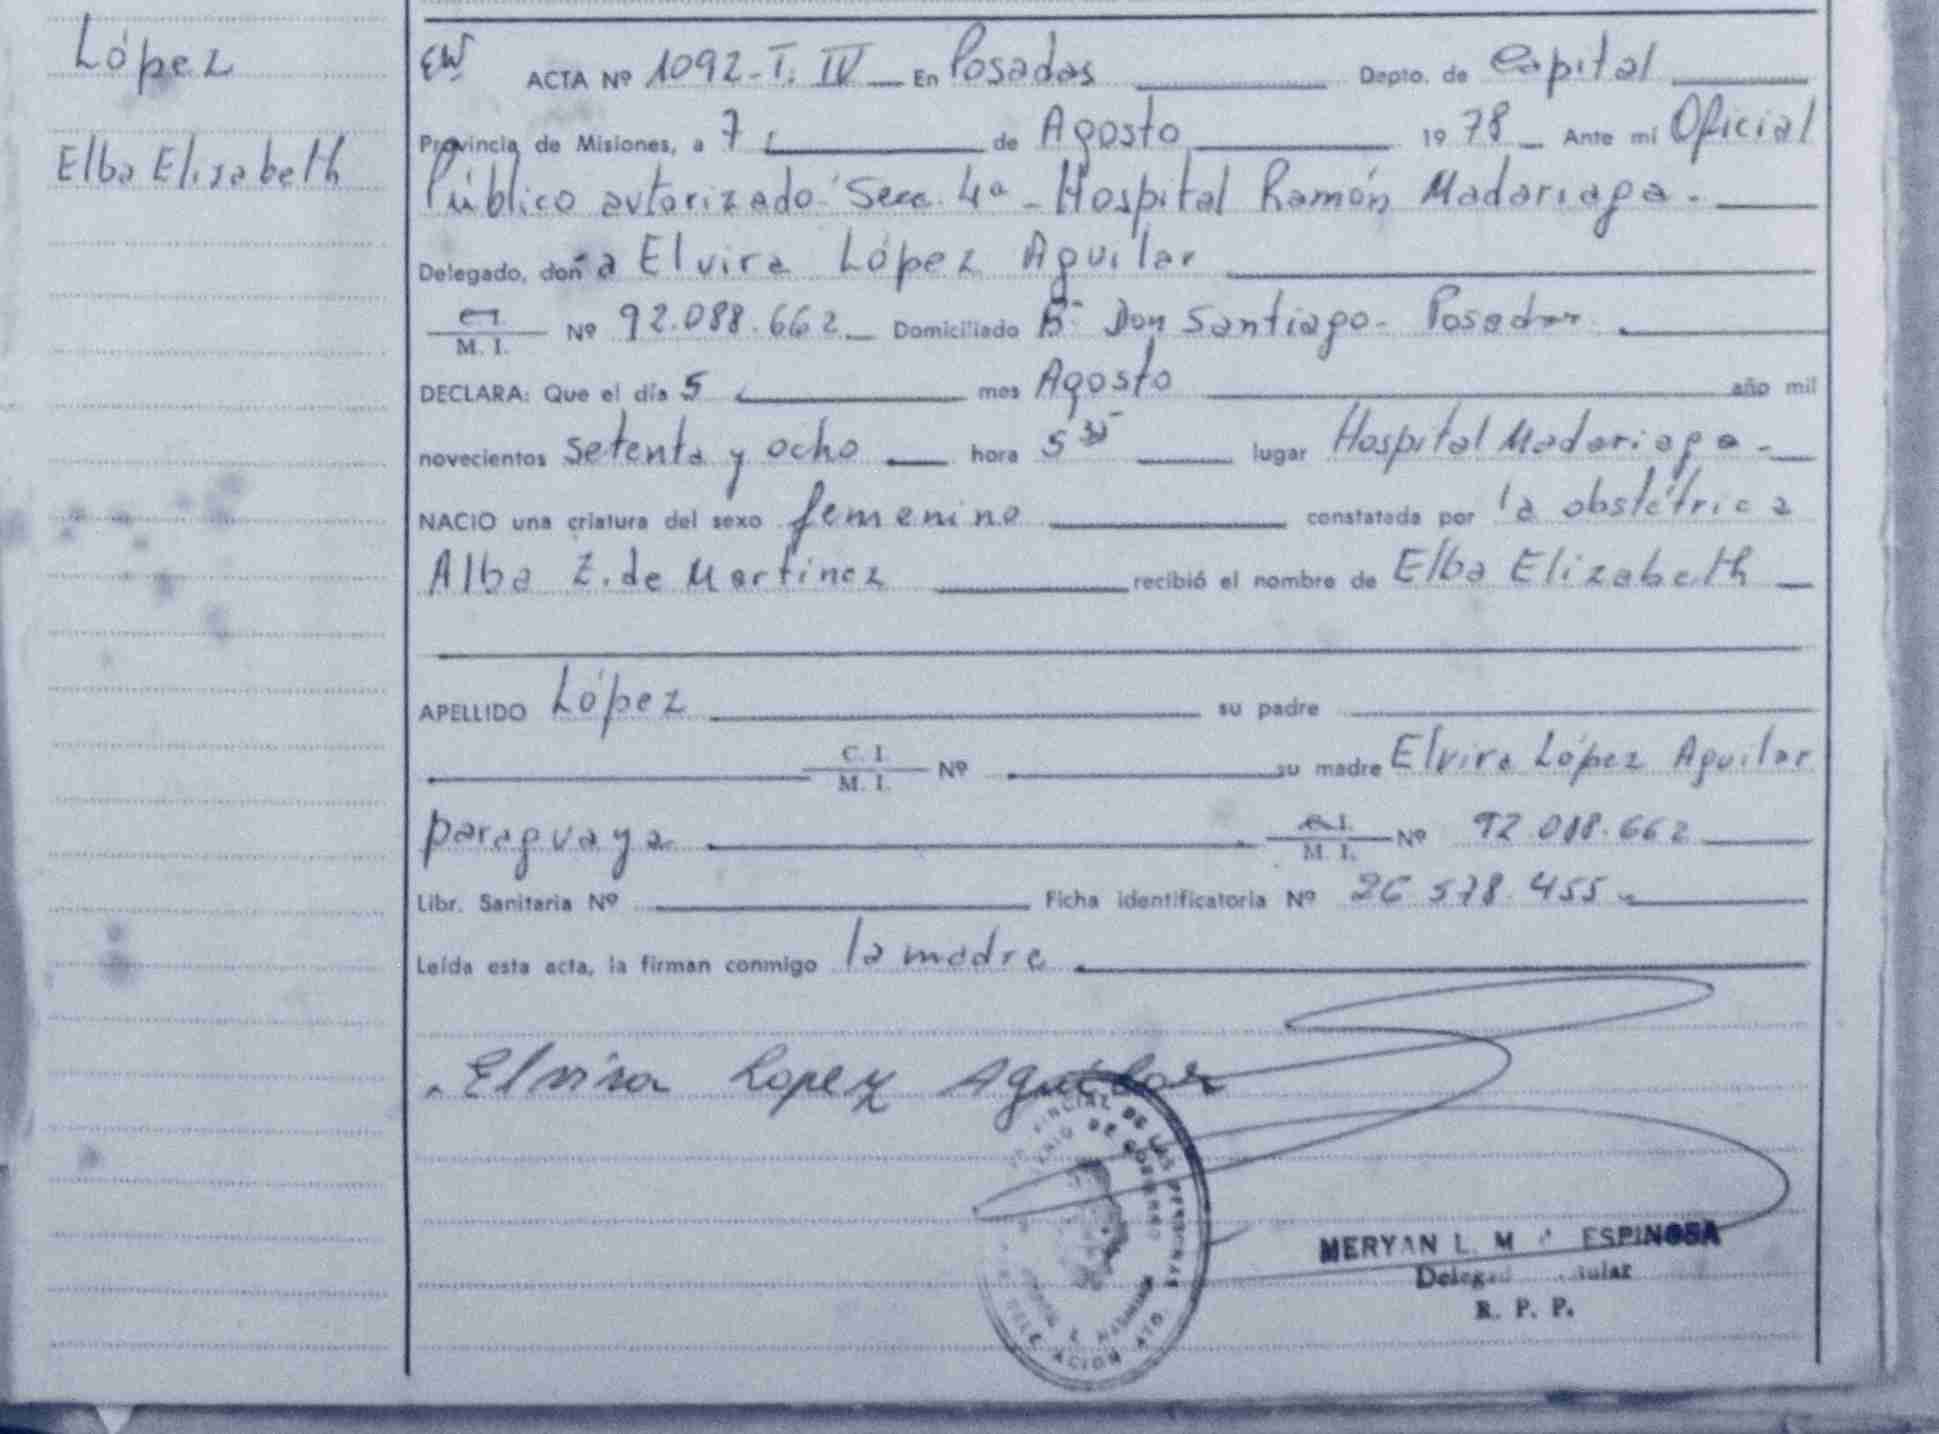 López
Elba Elizabeth
ACTA Nº 1092-T. IV En Posadas Depto. de Capital
Provincia de Misiones, a 7 de Agosto 1978 Ante mi Oficial
Público autorizado Secc. 4ª - Hospital Ramón Madariaga.
Delegado, doña Elvira López Aguilar
M. I. Nº 92.088.662 Domiciliado Bº Don Santiago - Posadas
DECLARA: Que el día 5 mes Agosto año mil
novecientos setenta y ocho hora 5 35 lugar Hospital Madariaga -
NACIO una criatura del sexo femenino constatada por la obstétrica
Alba Z. de Martínez recibió el nombre de Elba Elizabeth
APELLIDO López su padre
C. I.
M. I. Nº su madre Elvira López Aguilar
paraguaya M. I. Nº 92.088.662
Libr. Sanitaria Nº Ficha identificatoria Nº 26.578.455
Leída esta acta, la firman conmigo la madre
Elvira Lopez Aguilar
DE LAS PERSONAS
DE GOBIERNO
MERYAN L. M ESPINOSA
R. P. P.